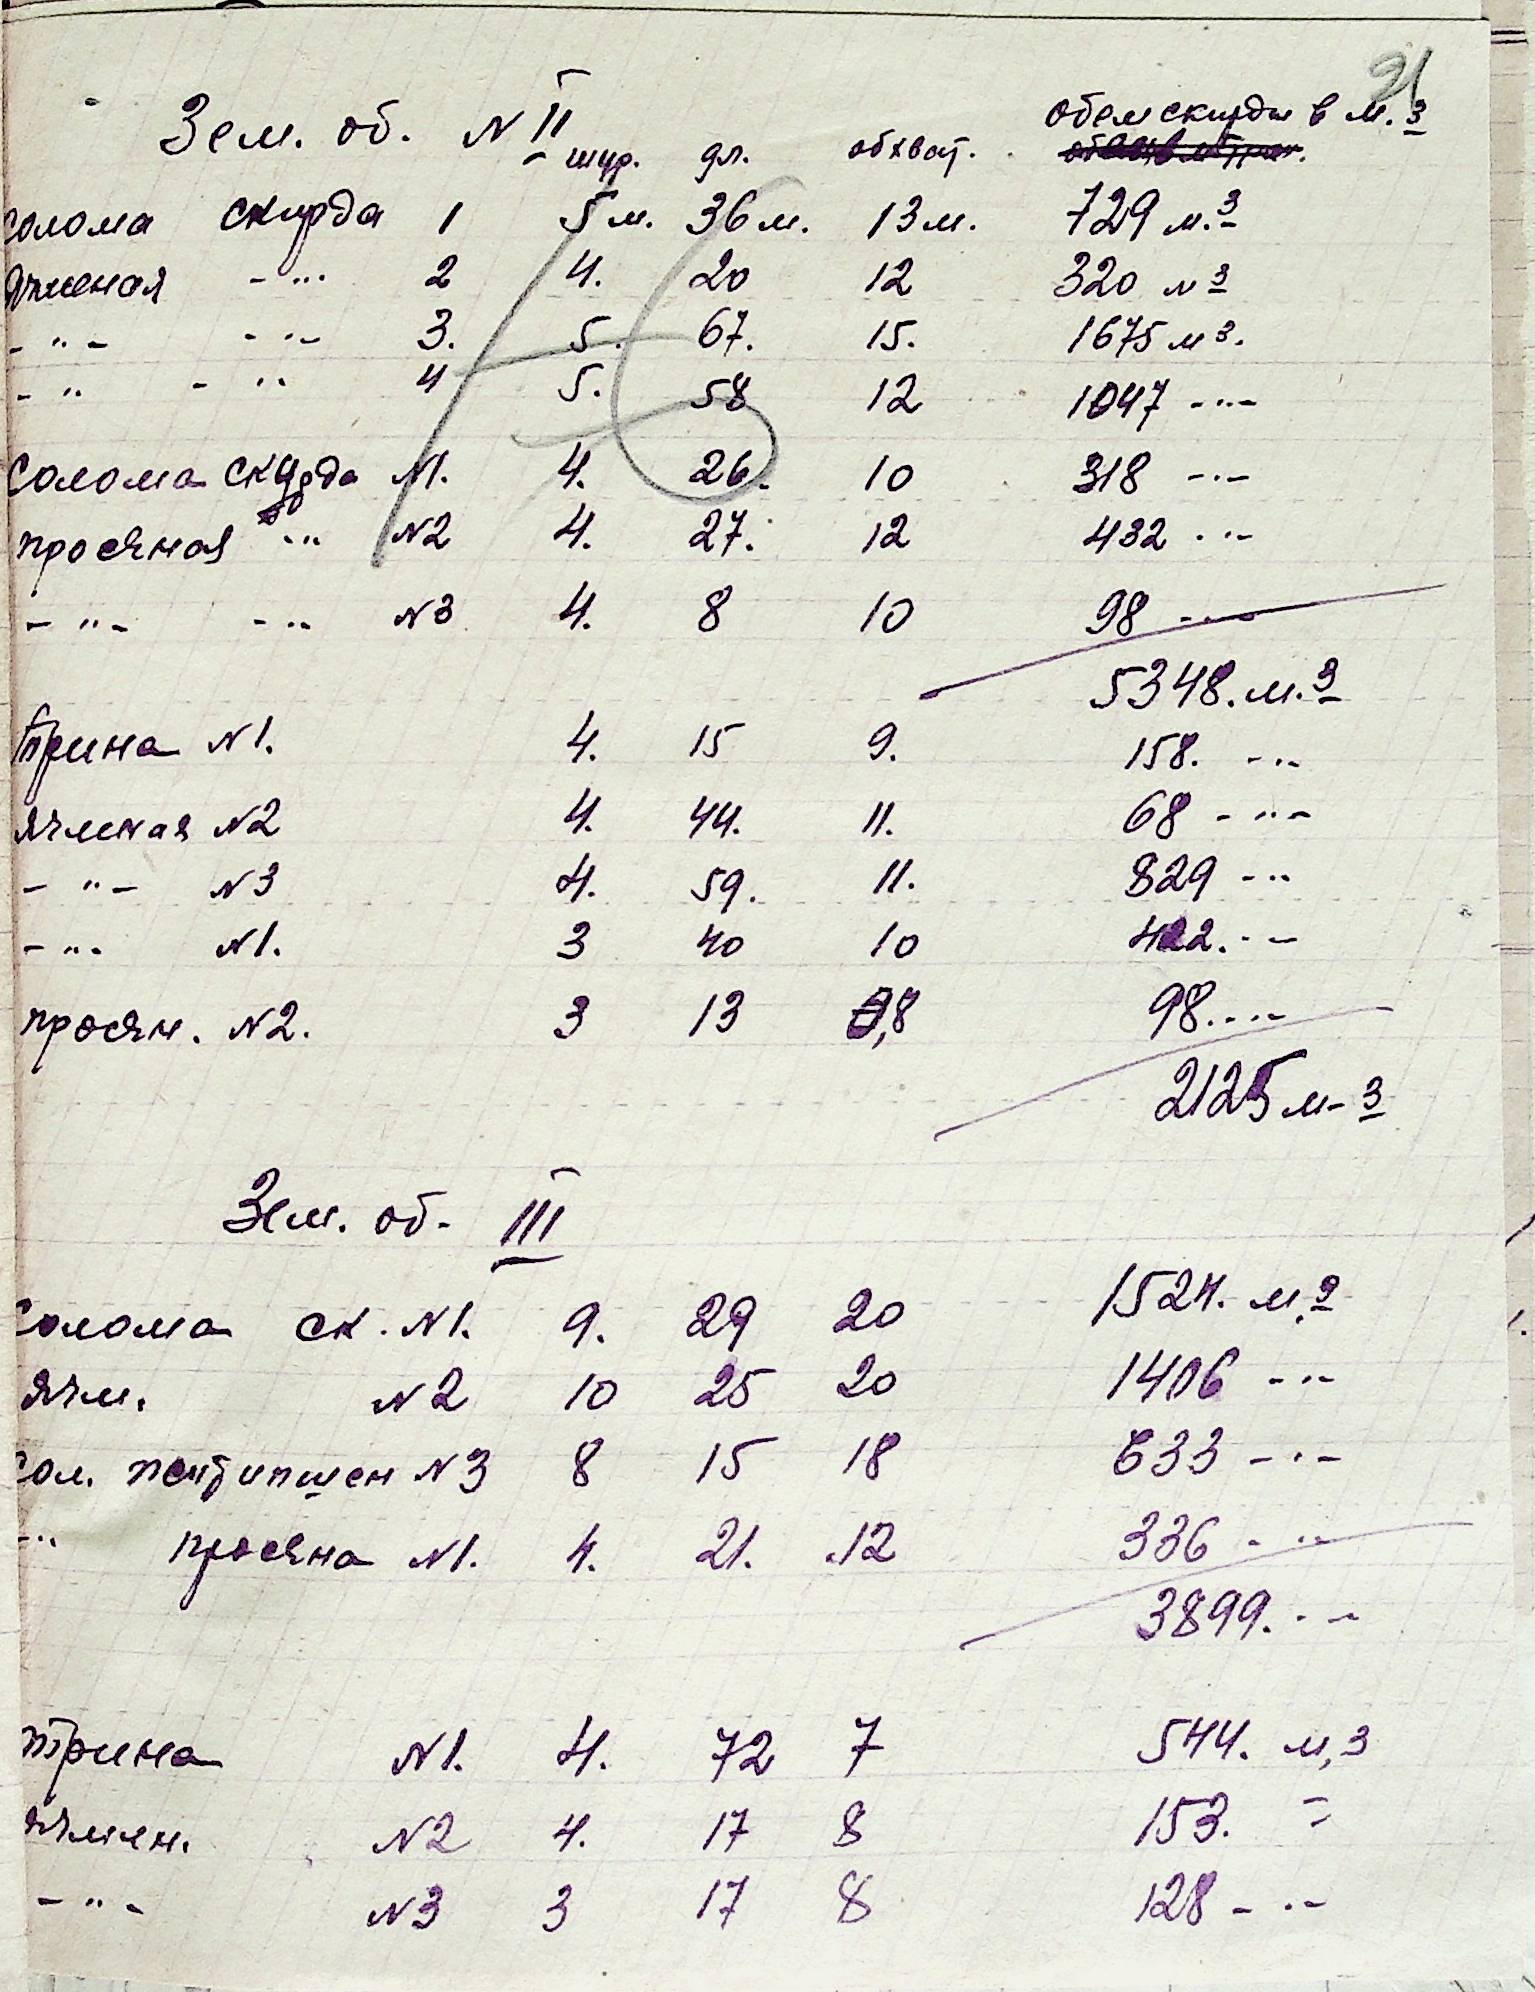 21
Зем. об. N II
шир. дл. обхват. обем скирды в м.3
солома скирда 1 5 м. 36 м. 13 м. 729 м.3
ячменая -"- 2 4. 20 12 320 м3
-"- -"- 3. 5. 67. 15. 1675 м3.
-"- -"- 4 5. 58 12 1047 -"-
солома скирда N1. 4. 26. 10 318 -"-
просяная -"- N2 4. 27. 12 432 -"-
-"- -"- N3 4. 8 10 98 -"-
5348. м.3
трина N1. 4. 15 9. 158. -"-
ячменая N2 4. 44. 11. 68 -"-
-"- N3 4. 59. 11. 829 -"-
-"- N1. 3 40 10 422. -"-
просян. N2. 3 13 9,8 98. -"-
2125 м-3
Зем. об. III
солома ск. N1. 9. 29 20 1524. м.3
ячм. N2 10 25 20 1406 -"-
сол. N3 8 15 18 633 -"-
-"- просяна N1. 4. 21. 12 336 -"-
3899. -"-
трина N1. 4. 72 7 544. м,3
ячмян. N2 4. 17 8 153. =
-"- N3 3 17 8 128 -"-